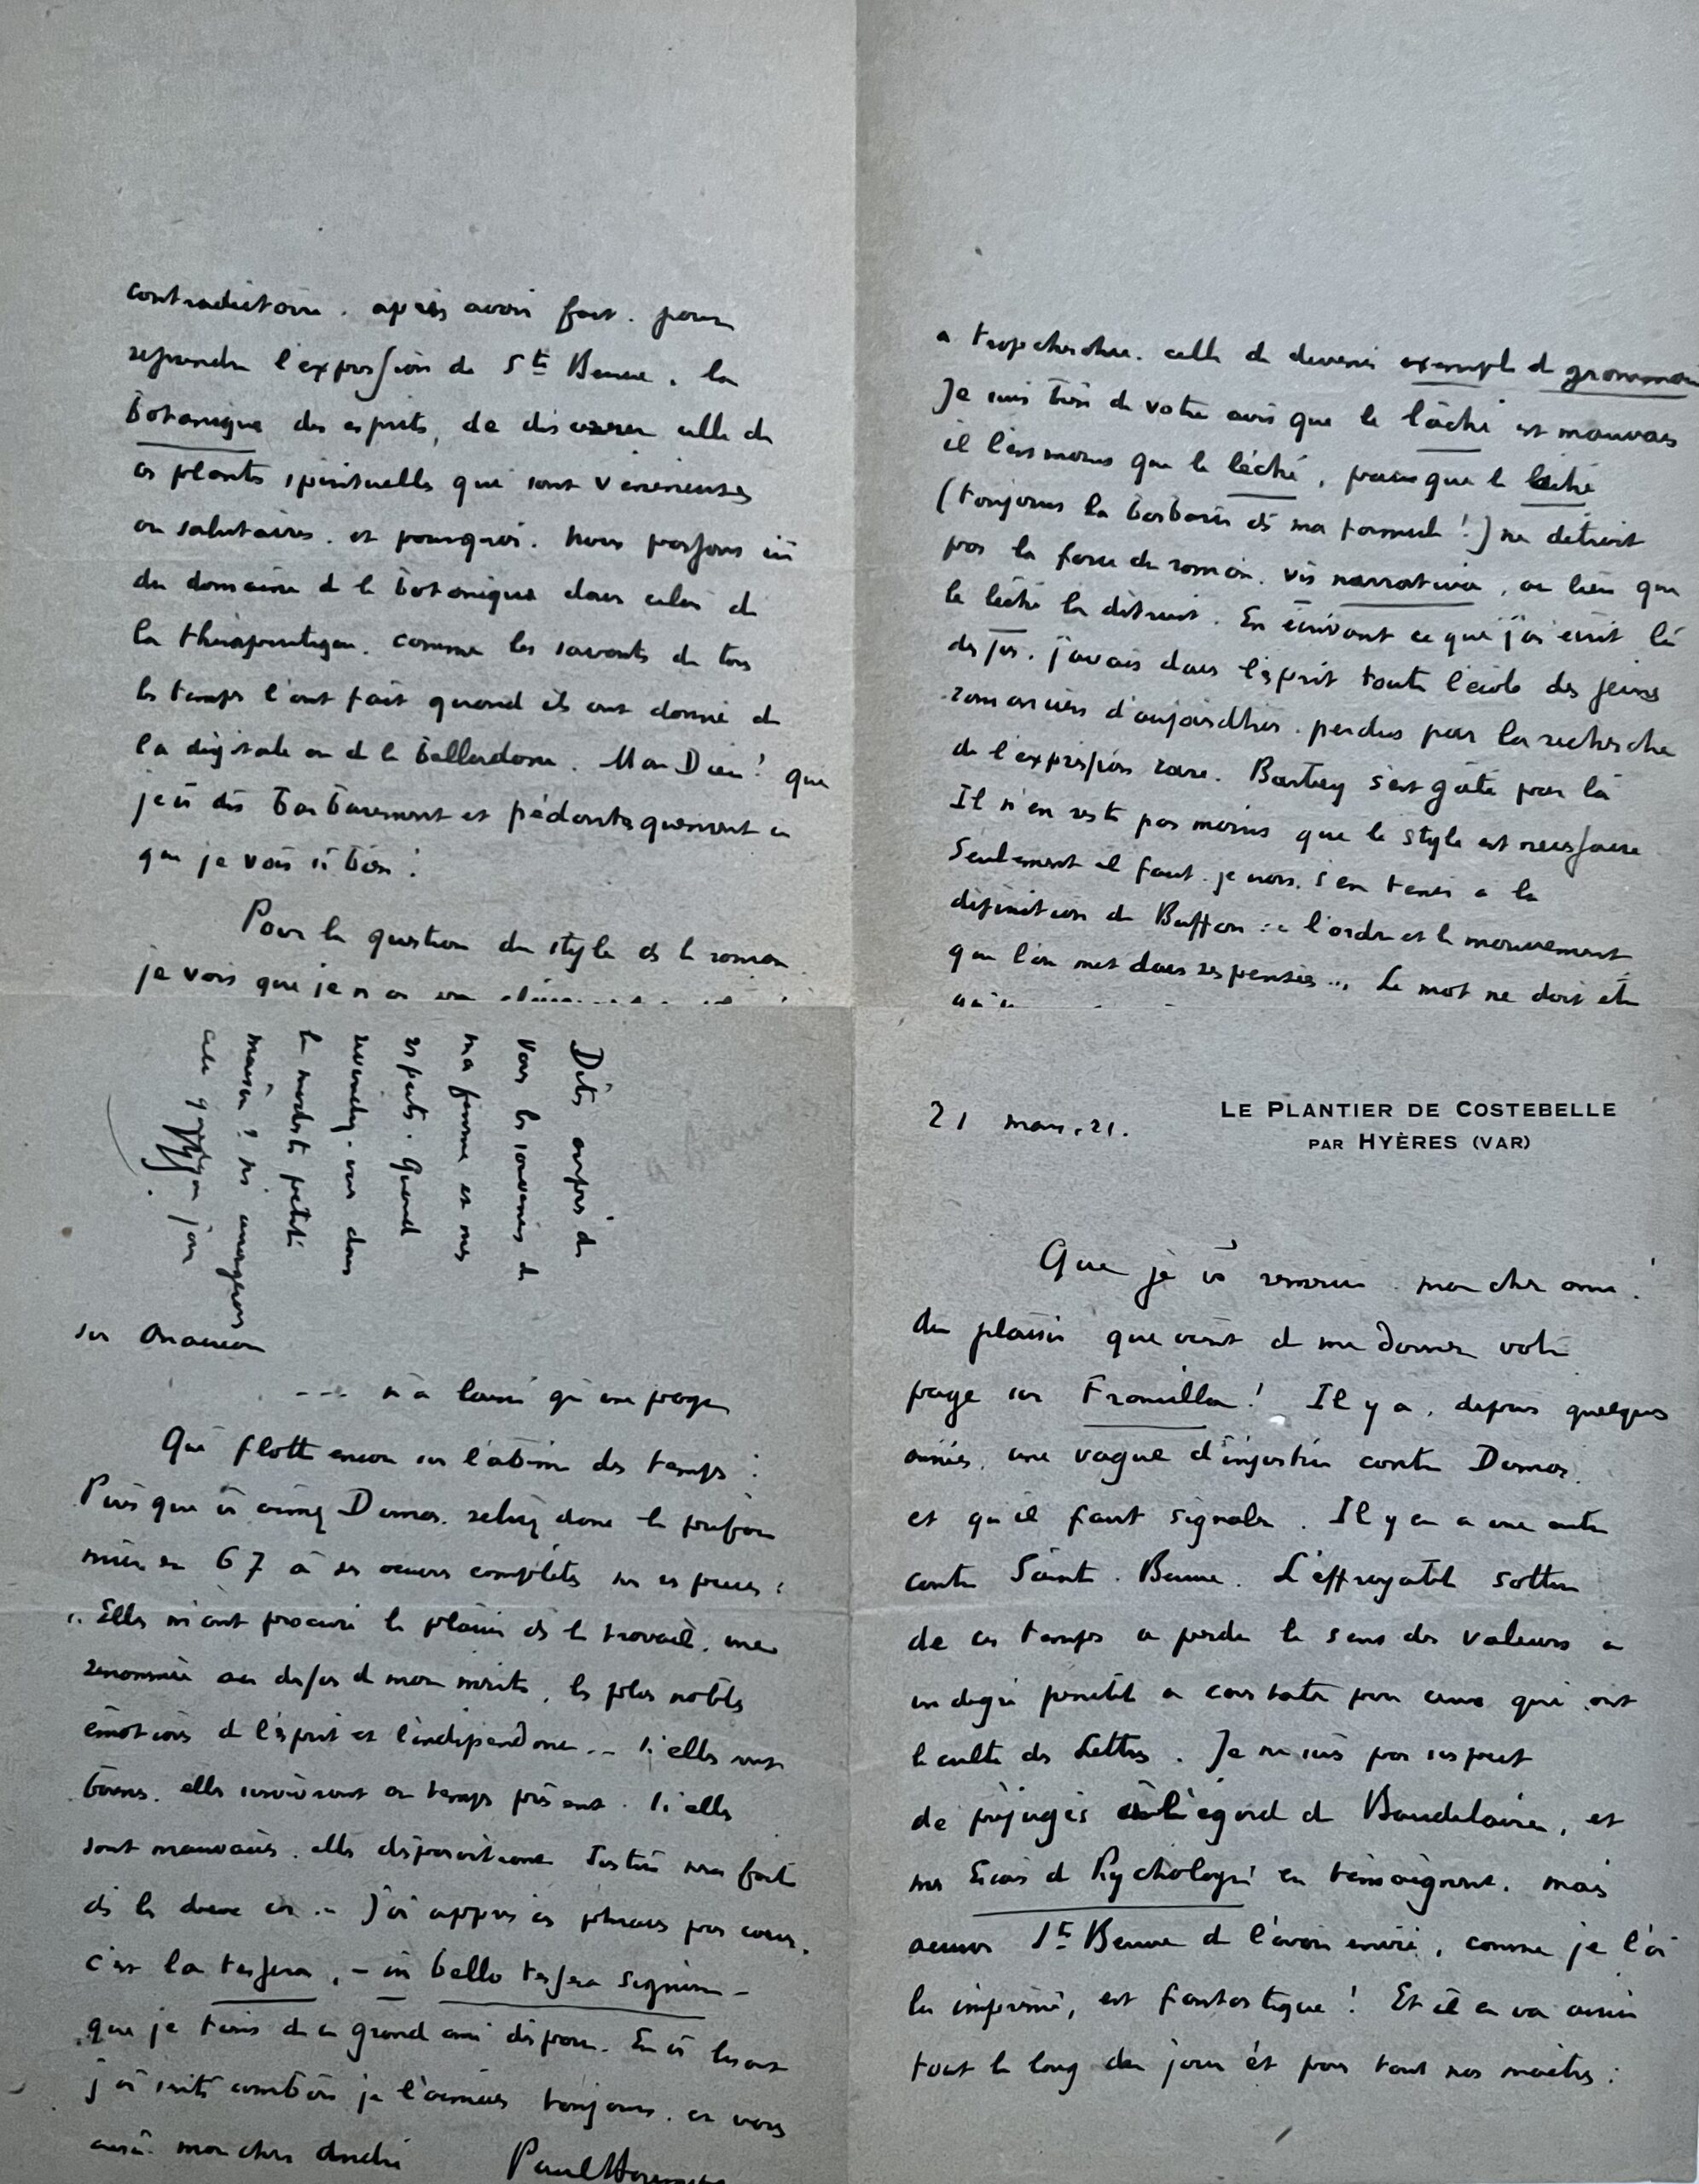 contradictoire. après avoir fait. pour
reprendre l'expression de Ste Beuve. la
botanique des esprits, de discerner celle de
ces plantes spirituelles qui sont vénéneuses
ou salutaires. et pourquoi. Nous passons ici
du domaine de la botanique dans celui de
la thérapeutique. comme les savants de tous
les temps l'ont fait quand ils ont donné de
la digitale ou de la belladone. Mon Dieu! que
je vs dis barbarement et pédantesquement ce
que je vois si bien!
Pour la question du style ds le roman
je vois que je n'ai
a trop chercher. celle de devenir exemple de grammaire
Je suis bien de votre avis que le lâché est mauvais
il l'est moins que le léché, parce que le lâché
(toujours la barbarie ds ma formule!) ne détruit
pas la force du roman. vis narrativa, au lieu que
le léché la détruit. En écrivant ce que j'ai écrit là
dessus. j'avais dans l'esprit toute l'école des jeunes
romanciers d'aujourd'hui. perdus par la recherche
de l'expression rare. Barbey s'est gâté par là
Il n'en reste pas moins que le style est nécessaire
Seulement il faut. je crois. s'en tenir à la
définition de Buffon : « l'ordre et le mouvement
que l'on met dans ses pensées... Le mot ne doit être
Dites auprès de
vous les souvenirs de
ma femme et mes
respects. Quand
reviendrez-vous dans
la modeste petite
maison? ns
sur Anacréon
--- n'a laissé qu'une page
Qui flotte encor sur l'abîme des temps :
Puisque vs aimez Dumas. relisez donc la préface
mise en 67 à ses œuvres complètes sur ses pièces :
« Elles m'ont procuré le plaisir ds le travail. une
renommée au dessus de mon mérite, les plus nobles
émotions de l'esprit et l'indépendance... Si elles sont
bonnes. elles survivront au temps présent. Si elles
sont mauvaises. elles disparaîtront Justice sera faite
ds les deux cas » J'ai appris ces phrases par cœur.
c'est la tessera, – in bello tessera signum –
que je tiens de ce grand ami disparu. En vs lisant
j'ai senti combien je l'aimais toujours. et vous
aussi. mon cher André Paul Bourget
21 mars. 21.
LE PLANTIER DE COSTEBELLE
PAR HYÈRES (VAR)
Que je vs remercie. mon cher ami!
du plaisir que vient de me donner votre
page sur Francillon! Il y a, depuis quelques
années, une vague d'injustice contre Dumas.
et qu'il faut signaler. Il y en a une autre
contre Sainte. Beuve. L'effroyable sottise
de ces temps a perdu le sens des valeurs à
un degré pénible à constater pour ceux qui ont
le culte des Lettres. Je ne suis pas suspect
de préjugés à l'égard de Baudelaire, et
mes Essais de Psychologie en témoignent. mais
accuser Ste Beuve de l'avoir envié, comme je l'ai
lu imprimé, est fantastique! Et il en va ainsi
tout le long du jour et pour tous nos maîtres :